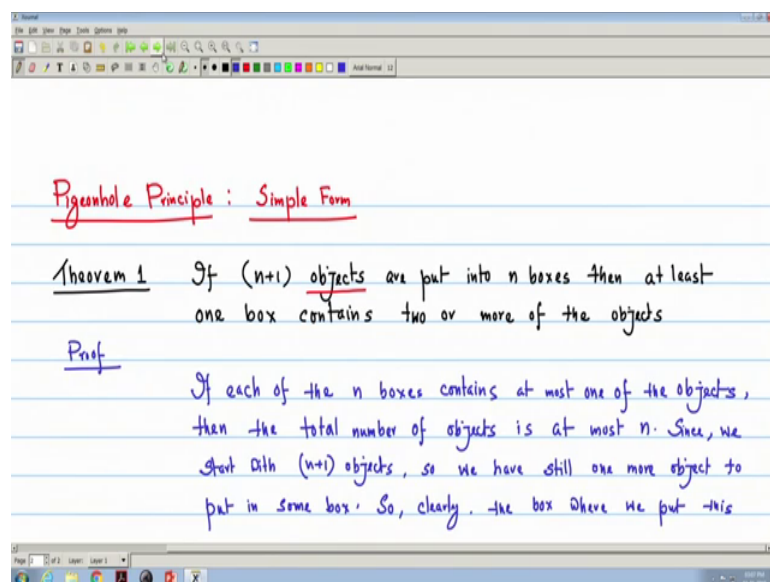 Journal
File Edit View Page Tools Options Help
Arial Normal 12
Pigeonhole Principle : Simple Form
Theorem 1 If (n+1) objects are put into n boxes then at least
one box contains two or more of the objects
Proof
If each of the n boxes contains at most one of the objects,
then the total number of objects is at most n. Since, we
start with (n+1) objects, so we have still one more object to
put in some box. So, clearly. the box where we put this
Page 2 of 2 Layer: Layer 1